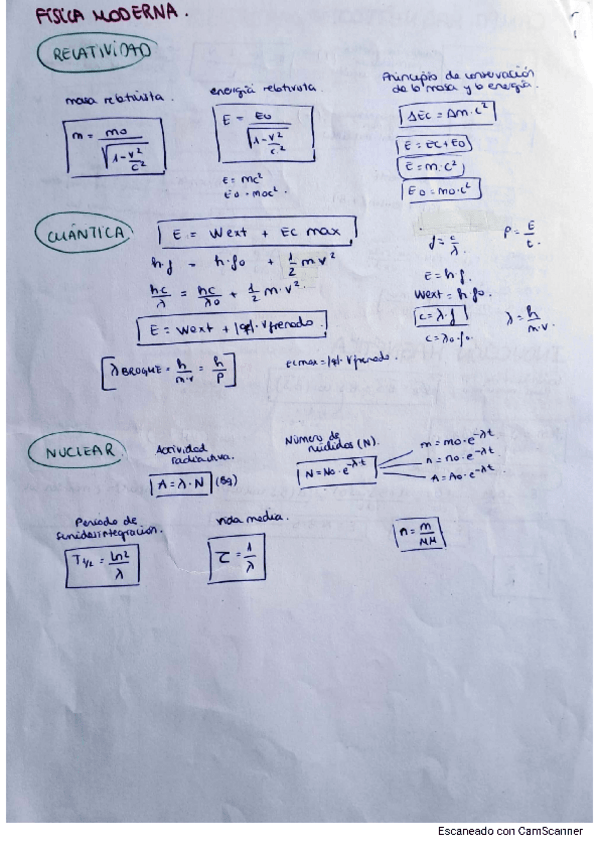 FÍSICA MODERNA.
RELATIVIDAD
masa relativista.
m = mo / √(1 - v²/c²)
energía relativista
E = Eo / √(1 - v²/c²)
E = mc²
Eo = moc².
Principio de conservación
de la masa y la energía.
ΔEc = Δm·c²
E = Ec + Eo
E = m·c²
Eo = mo·c²
CUÁNTICA
E = Wext + Ec max
h·f = h·fo + 1/2 m v²
hc/λ = hc/λo + 1/2 m·v².
E = Wext + |q|·V frenado.
[λ BROGLIE = h/m·v = h/P]
Ec max = |q|·V frenado.
f = c/λ.
E = h f.
Wext = h·fo.
c = λ·f
c = λo·fo.
P = E/t.
λ = h/m·v.
NUCLEAR.
Actividad
radiactiva.
A = λ·N (Bq)
Número de
núclidos (N).
N = No·e^-λ·t
m = mo·e^-λt
n = no·e^-λt
A = Ao·e^-λt
Período de
semidesintegración.
T1/2 = ln2/λ
Vida media.
τ = 1/λ
n = m/MM
Escaneado con CamScanner